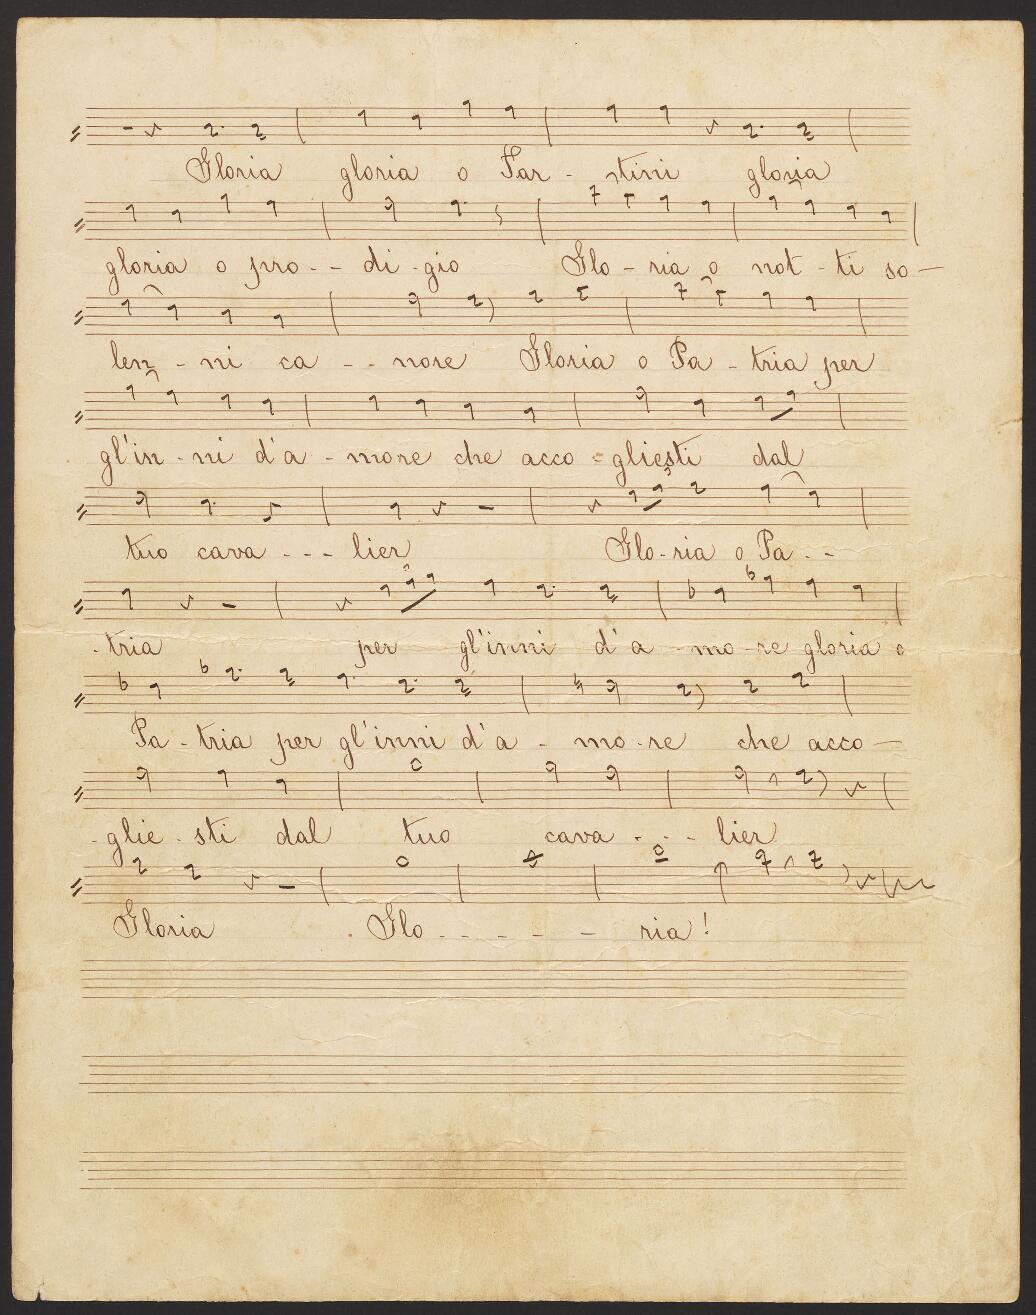 Gloria gloria o Far - stini gloria
gloria o pro - - di - gio Glo - ria o not - ti so -
len - ni ca - - nore Gloria o Pa - tria per
gl'in - ni d'a - more che acco - gliesti dal
tuo cava - - - lier Glo - ria o Pa - -
- tria per gl'inni d'a - mo - re gloria o
Pa - tria per gl'inni d'a - mo - re che acco -
- glie - sti dal tuo cava - - - lier
Gloria . Glo - - - - - ria !